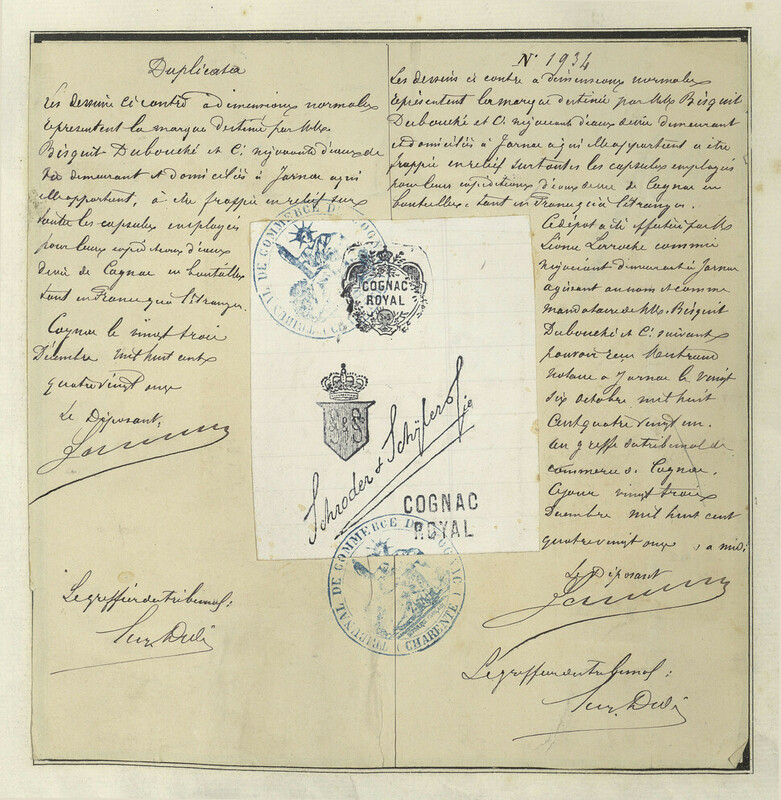 Duplicata
Les dessins ci contre à dimensions normales
représentent la marque destinée par MM.
Bisquit Dubouché et Cie négociants d'eaux de
vie demeurant et domiciliés à Jarnac à qui
elle appartient, à être frappée en relief sur
toutes les capsules employées
pour leurs expéditions d'eaux
de vie de Cognac en bouteilles
tant en France qu'à l'étranger.
Cognac le vingt trois
Décembre mil huit cent
quatre vingt onze
Le Déposant,
Le greffier du tribunal:
COGNAC
ROYAL
S&S
Schroder & Schÿler & Cie
COGNAC
ROYAL
TRIBUNAL DE COMMERCE DE COGNAC
TRIBUNAL DE COMMERCE DE COGNAC (CHARENTE)
N° 1934
Les dessins ci contre à dimensions normales
représentent la marque destinée par MM. Bisquit
Dubouché et Cie négociants d'eaux de vie demeurant
et domiciliés à Jarnac à qui elle appartient à être
frappée en relief sur toutes les capsules employées
pour leurs expéditions d'eaux de vie de Cognac en
bouteilles tant en France qu'à l'étranger.
Ce dépôt a été effectué par Mr
Léonce Larroche commis
négociant demeurant à Jarnac
agissant au nom et comme
mandataire de MM. Bisquit
Dubouché et Cie suivant
pouvoir reçu
notaire à Jarnac le vingt
six octobre mil huit
cent quatre vingt un.
au greffe du tribunal de
commerce de Cognac.
Ce jour vingt trois
Décembre mil huit cent
quatre vingt onze, à midi
Le Déposant
Le greffier du tribunal: